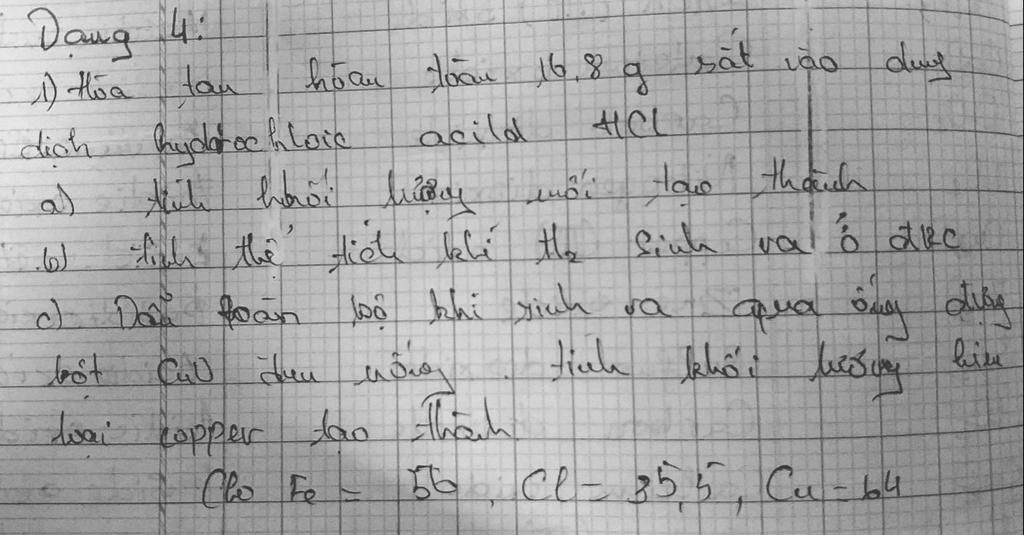 Dạng 4:
1) Hòa tan hoàn toàn 16,8 g sắt vào dung
dịch hydrochloic acild HCl
a) tính khối lượng muối tạo thành
b) tính thể tích khí H₂ sinh ra ở đkc
c) Dẫn toàn bộ khí sinh ra qua ống đựng
bột CuO đun nóng. tính khối lượng kim
loại copper tạo thành
Cho Fe = 56, Cl = 35,5, Cu = 64